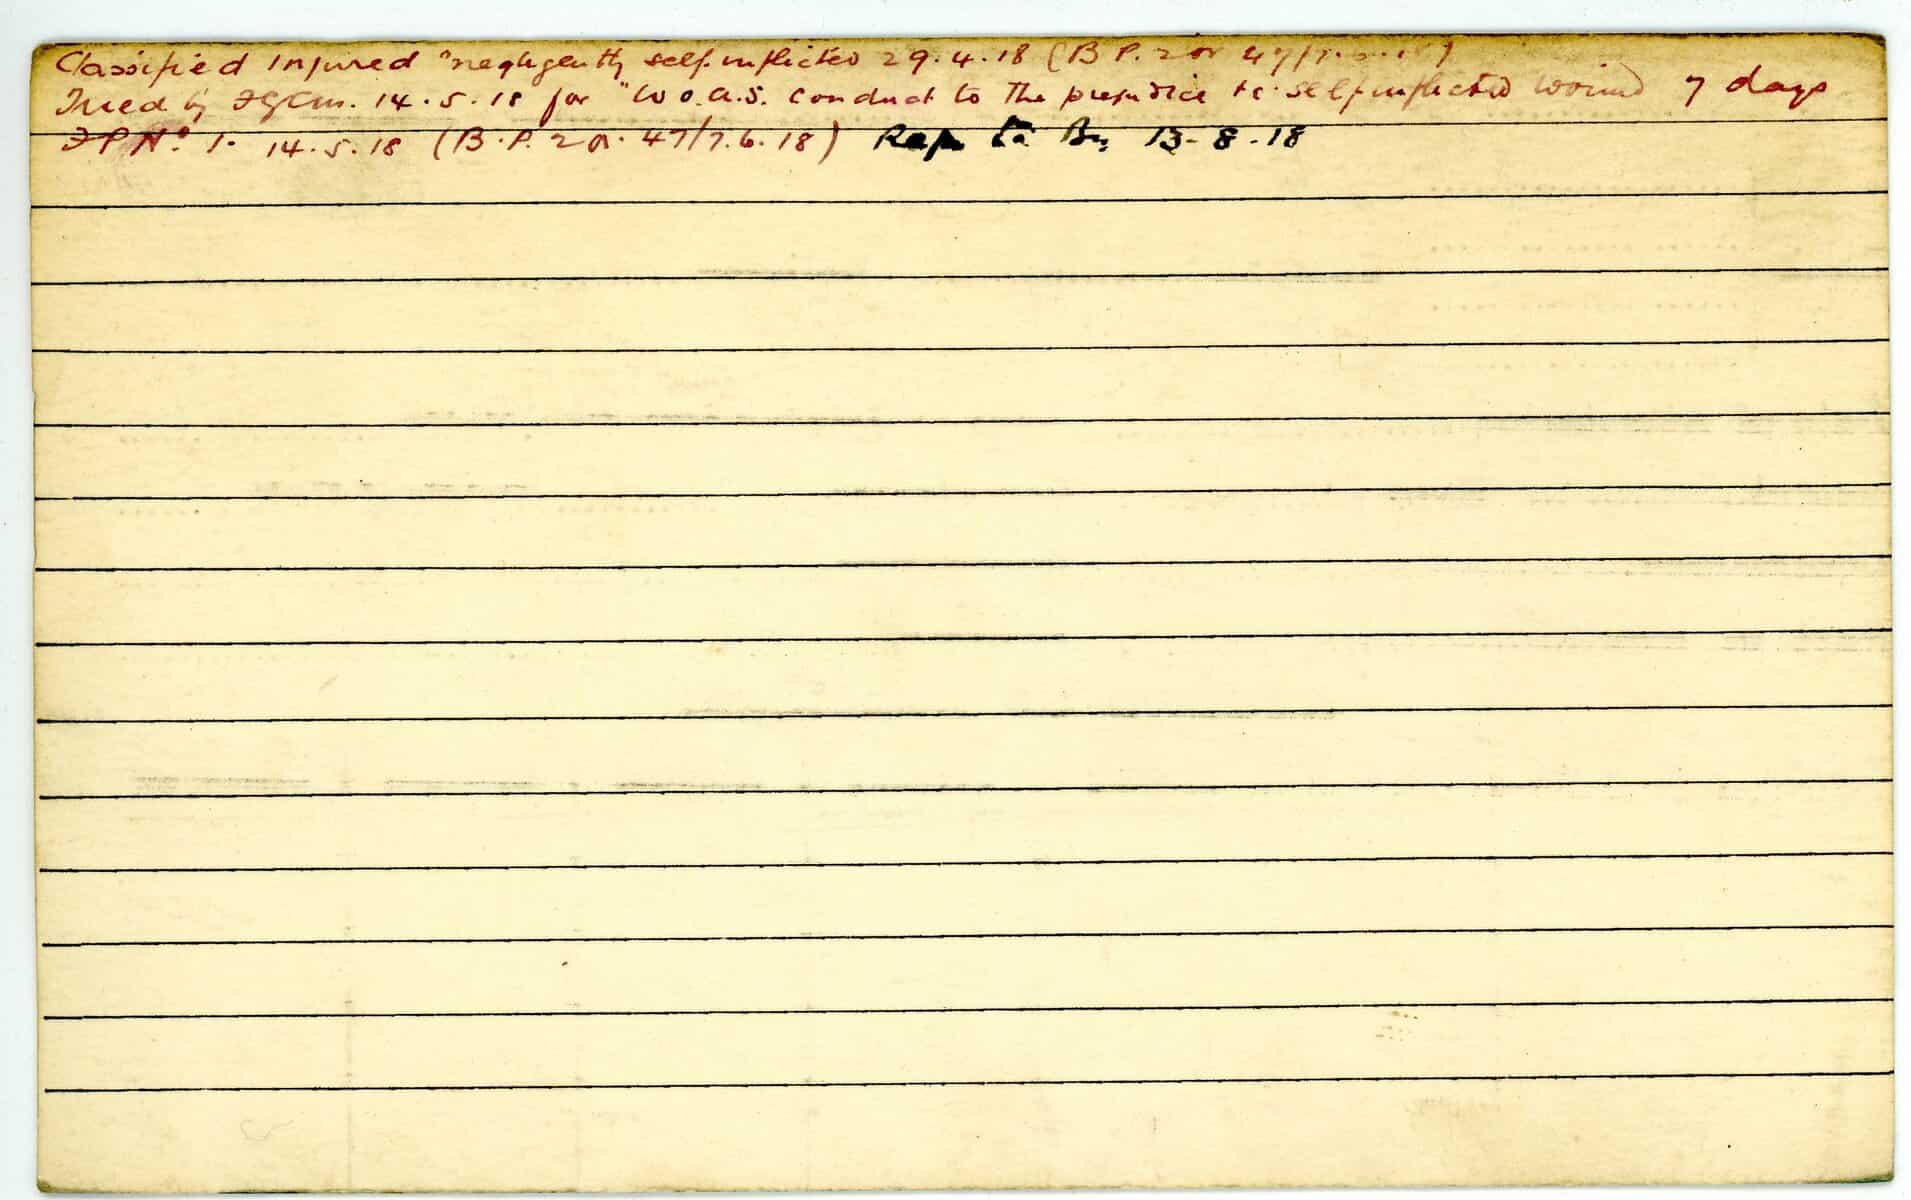 Classified Injured "negligently self-inflicted 29.4.18 (B.P. 2 or 47/7.6.18)
Tried by FGCM. 14.5.18 for "W.O.A.S. conduct to the prejudice tc. self inflicted wound 7 days
FP No. 1. 14.5.18 (B.P. 2 or. 47/7.6.18) Rep to Bn 13-8-18